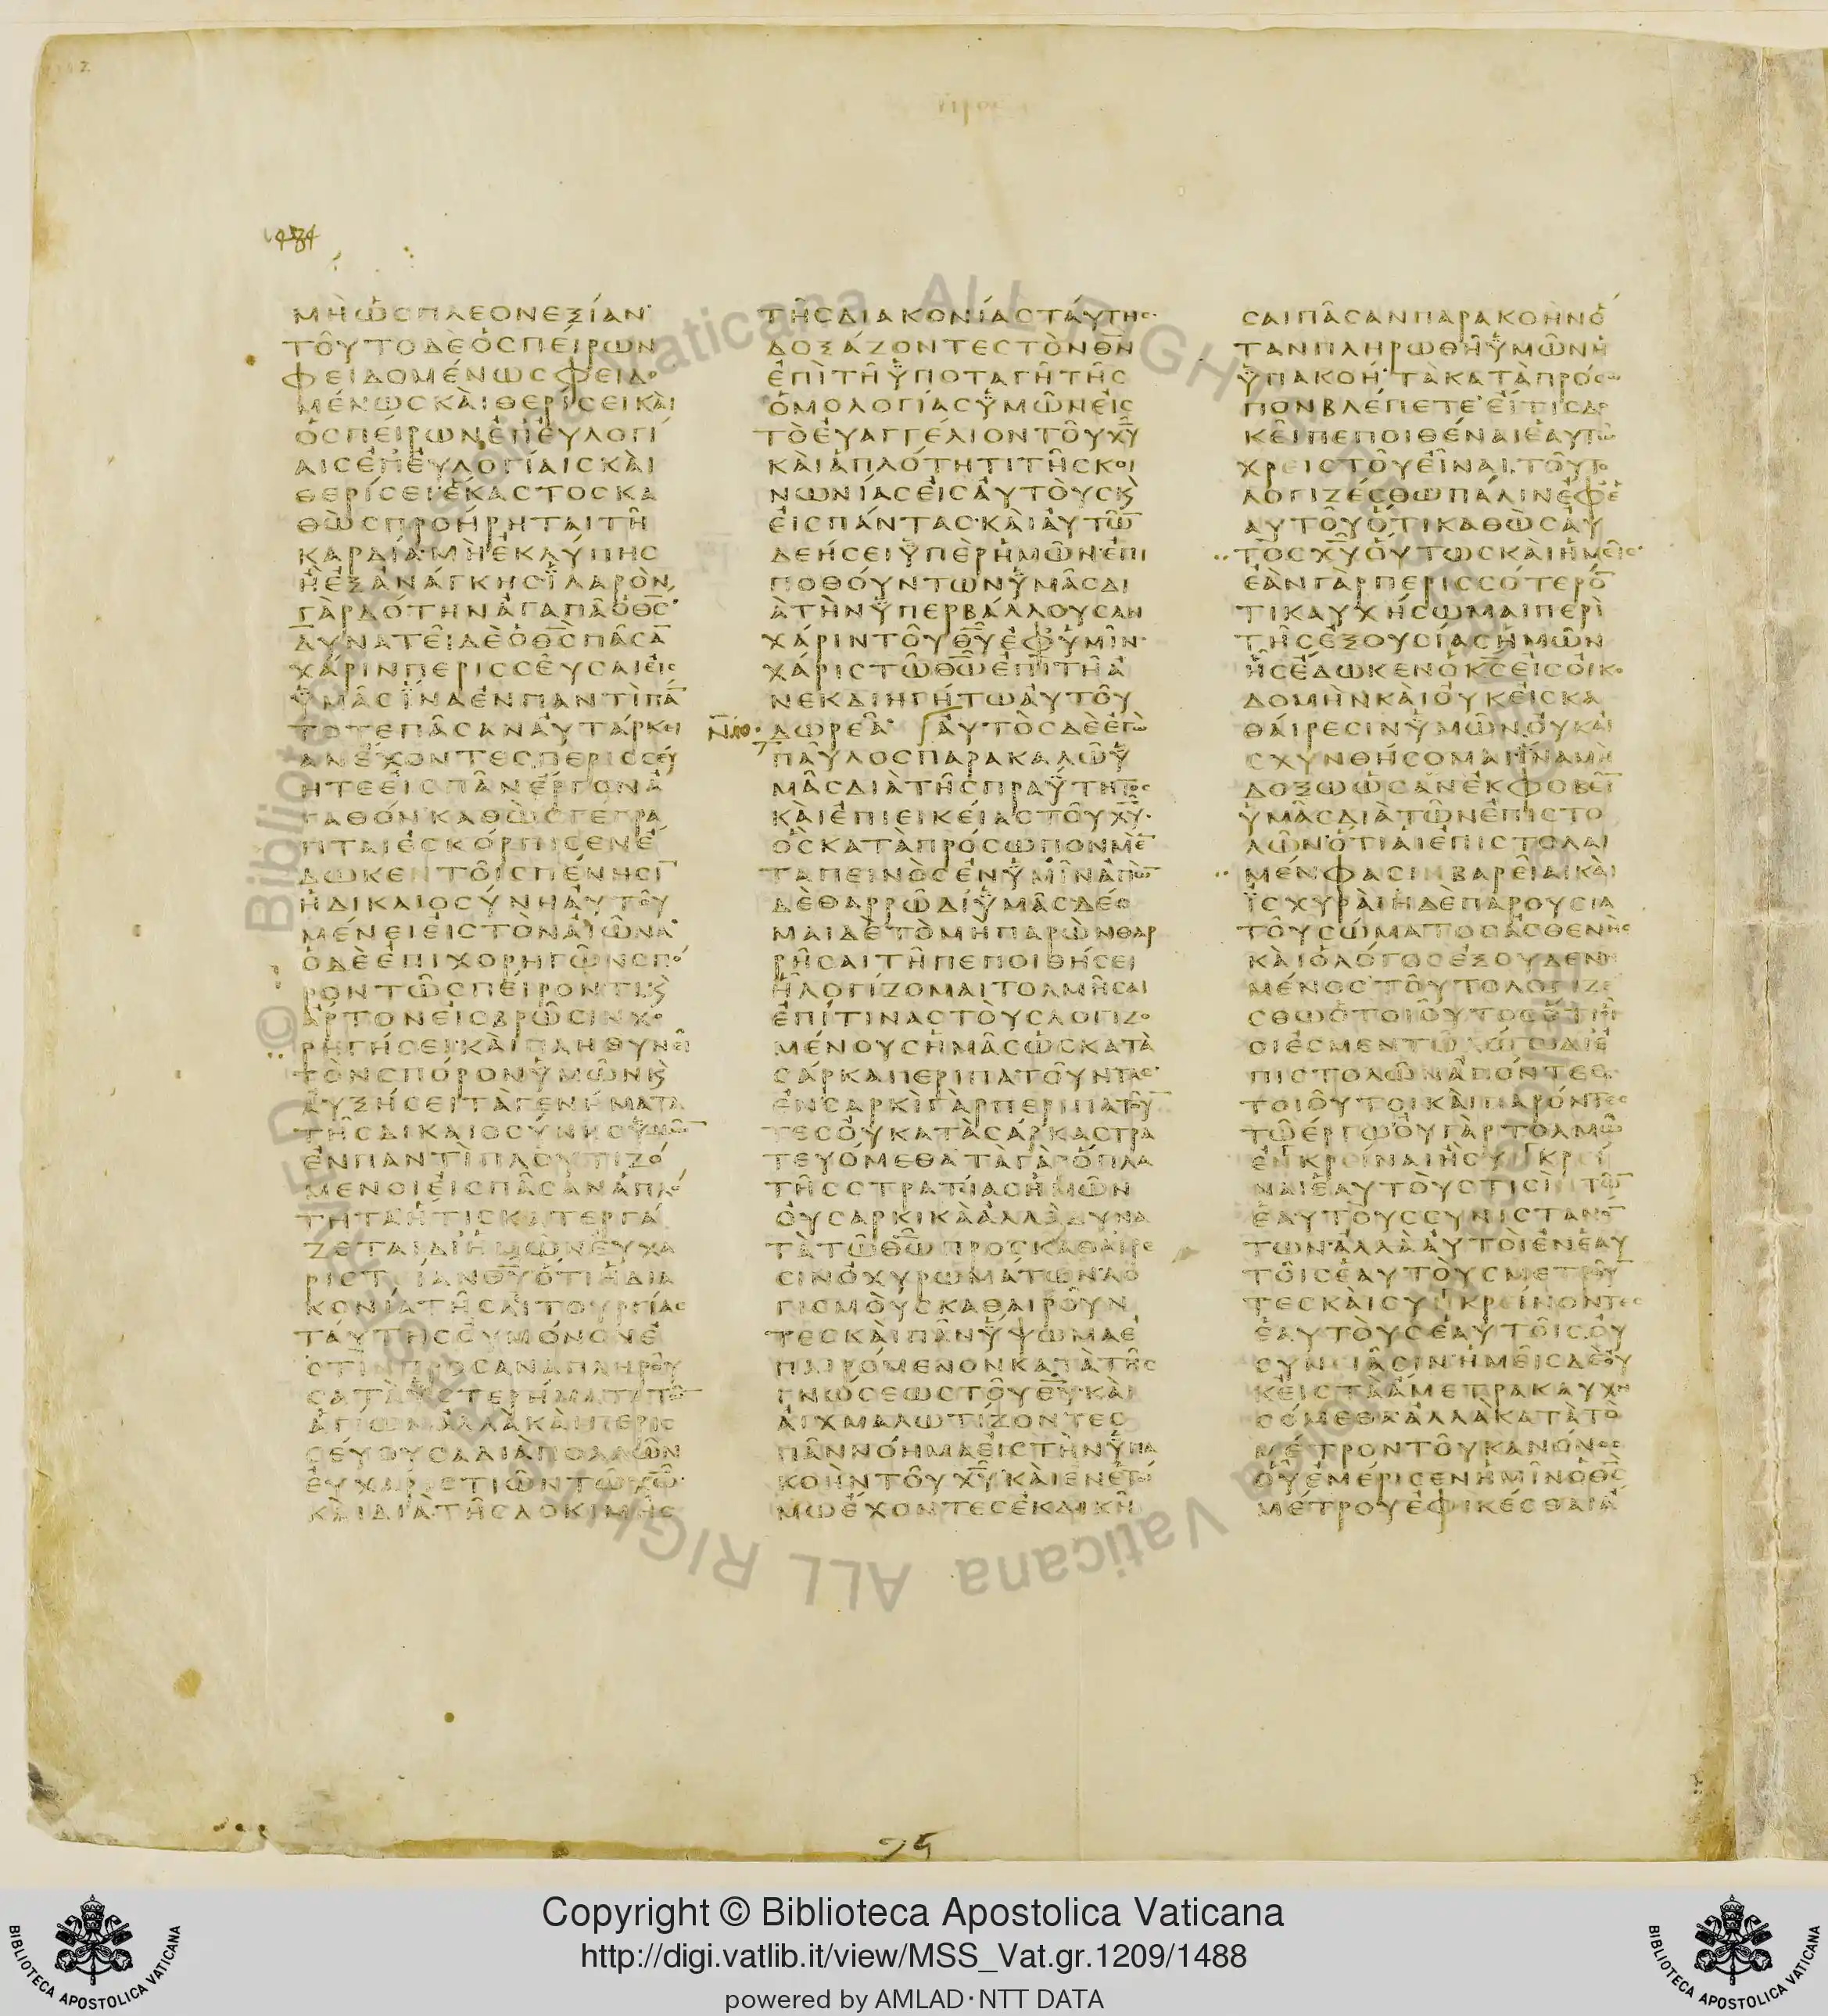 1484
ΜῊὩϹΠΛΕΟΝΕΞΊΑΝ·
ΤΟΥ͂ΤΟΔῈὉϹΠΕΊΡΩΝ
ΦΕΙΔΟΜΈΝΩϹΦΕΙΔΟ
ΜΈΝΩϹΚΑῚΘΕΡΊϹΕΙΚΑῚ
ὉϹΠΕΊΡΩΝἘΠΕΥ̓ΛΟΓΊ
ΑΙϹἘΠΕΥ̓ΛΟΓΊΑΙϹΚΑῚ
ΘΕΡΊϹΕΙ·ἝΚΑϹΤΟϹΚΑ
ΘῺϹΠΡΟΉΡΗΤΑΙΤΗ͂
ΚΑΡΔΊΑ·ΜῊἘΚΛΎΠΗϹ
Ἢ̓ΕΞΑΝΆΓΚΗϹ·ἹΛΑΡῸΝ
ΓᾺΡΔΌΤΗΝἈΓΑΠΑ͂ὉΘ̅Ϲ̅·
ΔΥΝΑΤΕΙ͂ΔῈὉΘ̅Ϲ̅ΠΑ͂ϹΑ̅
ΧΆΡΙΝΠΕΡΙϹϹΕΥ͂ϹΑΙΕἸϹ
ὙΜΑ͂ϹἽΝΑἘΝΠΑΝΤῚΠΆ̅
ΤΟΤΕΠΑ͂ϹΑΝΑΥ̓ΤΆΡΚΕΙ
ΑΝἜΧΟΝΤΕϹΠΕΡΙϹϹΕΎ
ΗΤΕΕἸϹΠΑ͂ΝἜΡΓΟΝἈ
ΓΑΘΌΝ·ΚΑΘῺϹΓΈΓΡΑ
ΠΤΑΙἘϹΚΌΡΠΙϹΕΝἜ
ΔΩΚΕΝΤΟΙ͂ϹΠΈΝΗϹΙ̅
ἩΔΙΚΑΙΟϹΎΝΗΑΥ̓ΤΟΥ͂
ΜΈΝΕΙΕἸϹΤῸΝΑἸΩ͂ΝΑ·
ὉΔῈἘΠΙΧΟΡΗΓΩ͂ΝϹΠΌ
ΡΟΝΤΩ͂ϹΠΕΊΡΟΝΤΙϗ
ἌΡΤΟΝΕἸϹΒΡΩ͂ϹΙΝΧΟ
ΡΗΓΉϹΕΙ·ΚΑῚΠΛΗΘΥΝΕΙ͂
ΤῸΝϹΠΌΡΟΝὙΜΩ͂Νϗ
ΑΥ̓ΞΉϹΕΙΤᾺΓΕΝΉΜΑΤΑ
ΤΗ͂ϹΔΙΚΑΙΟϹΎΝΗϹὙΜΩ͂̅
ἘΝΠΑΝΤῚΠΛΟΥΤΙΖΌ
ΜΕΝΟΙΕἸϹΠΑ͂ϹΑΝἉΠΛΌ
ΤΗΤΑἭΤΙϹΚΑΤΕΡΓΆ
ΖΕΤΑΙΔΙἩΜΩ͂ΝΕΥ̓ΧΑ
ΡΙϹΤΊΑΝΘ̅Υ̅ὍΤΙἩΔΙΑ
ΚΟΝΊΑΤΗ͂ϹΛΕΙΤΟΥΡΓΊΑϹ
ΤΑΎΤΗϹΟΥ̓ΜΌΝΟΝἘ
ϹΤῚΝΠΡΟϹΑΝΑΠΛΗΡΟΥ͂
ϹΑΤᾺὙϹΤΕΡΉΜΑΤΑΤΩ͂̅
ἉΓΊΩΝἈΛΛᾺΚΑῚΠΕΡΙϹ
ϹΕΎΟΥϹΑΔΙᾺΠΟΛΛΩ͂Ν
ΕΥ̓ΧΑΡΙϹΤΙΩ͂ΝΤΩ͂Χ̅Ω̅·
ΚΑῚΔΙᾺΤΗ͂ϹΔΟΚΙΜΗ͂Ϲ
ΤΗ͂ϹΔΙΑΚΟΝΊΑϹΤΑΎΤΗϹ·
ΔΟΞΆΖΟΝΤΕϹΤῸΝΘ̅Ν̅
ἘΠῚΤΗ͂ὙΠΟΤΑΓΗ͂ΤΗ͂Ϲ
ὉΜΟΛΟΓΊΑϹὙΜΩ͂ΝΕἸϹ
ΤῸΕΥ̓ΑΓΓΈΛΙΟΝΤΟΥ͂Χ̅Υ̅
ΚΑῚἉΠΛΌΤΗΤΙΤΗ͂ϹΚΟΙ
ΝΩΝΊΑϹΕἸϹΑΥ̓ΤΟῪϹϗ
ΕἸϹΠΆΝΤΑϹ·ΚΑῚΑΥ̓ΤΩ͂̅
ΔΕΉϹΕΙὙΠῈΡἩΜΩ͂Ν·ἘΠΙ
ΠΟΘΟΎΝΤΩΝὙΜΑ͂ϹΔΙ
ᾺΤῊΝὙΠΕΡΒΆΛΛΟΥϹΑΝ
ΧΆΡΙΝΤΟΥ͂Θ̅Υ̅ἘΦὙΜΙ͂Ν·
ΧΆΡΙϹΤΩ͂Θ̅Ω̅ἘΠῚΤΗ͂Ἀ
ΝΕΚΔΙΗΓΉΤΩΑΥ̓ΤΟΥ͂
ΔΩΡΕΑ͂· ΑΥ̓ΤῸϹΔῈἘΓῺ
ΠΑΥ͂ΛΟϹΠΑΡΑΚΑΛΩ͂Ὑ
ΜΑ͂ϹΔΙᾺΤΗ͂ϹΠΡΑΫ́ΤΗΤΟϹ
ΚΑῚἘΠΙΕΙΚΕΊΑϹΤΟΥ͂Χ̅Υ̅·
ὉϹΚΑΤᾺΠΡΌϹΩΠΟΝΜῈ̅
ΤΑΠΕΙΝῸϹἘΝὙΜΙ͂ΝἈΠῺ̅
ΔῈΘΑΡΡΩ͂ΔΊὙΜΑ͂ϹΔΈΟ
ΜΑΙΔῈΤῸΜῊΠΑΡῺΝΘΑΡ
ΡΗ͂ϹΑΙΤΗ͂ΠΕΠΟΙΘΉϹΕΙ
Ἧ̔ΛΟΓΊΖΟΜΑΙΤΟΛΜΗ͂ϹΑΙ
ἘΠΊΤΙΝΑϹΤΟῪϹΛΟΓΙΖΟ
ΜΈΝΟΥϹἩΜΑ͂ϹὩϹΚΑΤᾺ
ϹΆΡΚΑΠΕΡΙΠΑΤΟΥ͂ΝΤΑϹ·
ἘΝϹΑΡΚῚΓᾺΡΠΕΡΙΠΑΤΟΥ͂
ΤΕϹΟΥ̓ΚΑΤᾺϹΆΡΚΑϹΤΡΑ
ΤΕΥΌΜΕΘΑΤᾺΓᾺΡὍΠΛΑ
ΤΗ͂ϹϹΤΡΑΤΊΑϹἩΜΩ͂Ν
ΟΥ̓ϹΑΡΚΙΚᾺἈΛΛᾺΔΥΝΑ
ΤᾺΤΩ͂Θ̅Ω̅ΠΡῸϹΚΑΘΑΊΡΕ
ϹΙΝὈΧΥΡΩΜΆΤΩΝ·ΛΟ
ΓΙϹΜΟῪϹΚΑΘΑΙΡΟΥ͂Ν
ΤΕϹΚΑῚΠΑ͂ΝὝΨΩΜΑἘ
ΠΑΙΡΌΜΕΝΟΝΚΑΤᾺΤΗ͂Ϲ
ΓΝΏϹΕΩϹΤΟΥ͂Θ̅Υ̅·ΚΑῚ
ΑἸΧΜΑΛΩΤΊΖΟΝΤΕϹ
ΠΑ͂ΝΝΌΗΜΑΕἸϹΤῊΝὙΠΑ
ΚΟῊΝΤΟΥ͂Χ̅Υ̅·ΚΑῚἘΝἘΤΟΊ
ΜΩἜΧΟΝΤΕϹἘΚΔΙΚΗ͂
ϹΑΙΠΑ͂ϹΑΝΠΑΡΑΚΟῊΝὍ
ΤΑΝΠΛΗΡΩΘΗ͂ὙΜΩ͂ΝἩ
ὙΠΑΚΟΉ·ΤᾺΚΑΤᾺΠΡΌϹΩ
ΠΟΝΒΛΈΠΕΤΕ·ΕἼΤΙϹΔΟ
ΚΕΙ͂ΠΕΠΟΙΘΈΝΑΙἙΑΥΤΩ͂
ΧΡΕΙϹΤΟΥ͂ΕἾΝΑΙ,ΤΟΥ͂ΤΟ
ΛΟΓΙΖΈϹΘΩΠΆΛΙΝἘΦἙ
ΑΥΤΟΥ͂ὍΤΙΚΑΘῺϹΑΥ̓
ΤῸϹΧ̅Υ̅ΟὝΤΩϹΚΑῚἩΜΕΙ͂Ϲ·
ἘᾺΝΓᾺΡΠΕΡΙϹϹΌΤΕΡΌ̅
ΤΙΚΑΥΧΉϹΩΜΑΙΠΕΡῚ
ΤΗ͂ϹἘΞΟΥϹΊΑϹἩΜΩ͂Ν
ἯϹἜΔΩΚΕΝὉΚ̅Ϲ̅ΕἸϹΟἸΚΟ
ΔΟΜῊΝΚΑῚΟΥ̓ΚΕἸϹΚΑ
ΘΑΊΡΕϹΙΝὙΜΩ͂Ν,ΟΥ̓ΚΑΙ
ϹΧΥΝΘΉϹΟΜΑΙἽΝΑΜῊ
ΔΌΞΩὩϹΑΝἘΚΦΟΒΕΙ͂̅
ὙΜΑ͂ϹΔΙᾺΤΩ͂ΝἘΠΙϹΤΟ
ΛΩ͂Ν·ὍΤΙΑἹἘΠΙϹΤΟΛΑῚ
ΜΈΝΦΑϹΙΝΒΑΡΕΙ͂ΑΙΚΑῚ
ἸϹΧΥΡΑῚἩΔῈΠΑΡΟΥϹΊΑ
ΤΟΥ͂ϹΏΜΑΤΟϹἈϹΘΕΝῊϹ
ΚΑῚὉΛΌΓΟϹἘΞΟΥΔΕΝΗ
ΜΈΝΟϹ·ΤΟΥ͂ΤΟΛΟΓΙΖΕ
ϹΘΩὉΤΟΙΟΥ͂ΤΟϹὍΤΙ
ΟἿΟΊἘϹΜΕΝΤΩ͂ΛΌΓΩΔΙἘ
ΠΙϹΤΟΛΩ͂ΝἈΠΌΝΤΕϹ
ΤΟΙΟΥ͂ΤΟΙΚΑῚΠΑΡΌΝΤΕϹ
ΤΩ͂ἜΡΓΩ·ΟΥ̓ΓᾺΡΤΟΛΜΩ͂
ἘΝΚΡΕΙ͂ΝΑΙἪϹΥΝΚΡΕΙ͂
ΝΑΙἙΑΥΤΟΎϹΤΙϹῚΤΩ͂̅
ἙΑΥΤΟῪϹϹΥΝΙϹΤΑΝΌ̅
ΤΩΝἈΛΛᾺΑΥ̓ΤΟῚἘΝἙΑΥ
ΤΟΙ͂ϹἙΑΥΤΟῪϹΜΕΤΡΟΥ͂̅
ΤΕϹΚΑῚϹΥΝΚΡΕΊΝΟΝΤΕϹ
ἙΑΥΤΟῪϹἙΑΥΤΟΙ͂Ϲ,ΟΥ̓
ϹΥΝΙΑ͂ϹΙΝ·ἩΜΕΙ͂ϹΔῈΟΥ̓
ΚΕἸϹΤᾺἌΜΕΤΡΑΚΑΥΧΗ
ϹΌΜΕΘΑ·ἈΛΛᾺΚΑΤᾺΤῸ
ΜΈΤΡΟΝΤΟΥ͂ΚΑΝΌΝΟϹ
ΟὟἘΜΈΡΙϹΕΝἩΜΙ͂ΝὉΘ̅Ϲ̅
ΜΈΤΡΟΥἘΦΙΚΈϹΘΑΙἌ
© Biblioteca Apostolica Vaticana ALL RIGHTS RESERVED
Copyright © Biblioteca Apostolica Vaticana
http://digi.vatlib.it/view/MSS_Vat.gr.1209/1488
powered by AMLAD·NTT DATA
BIBLIOTECA APOSTOLICA VATICANA
BIBLIOTECA APOSTOLICA VATICANA